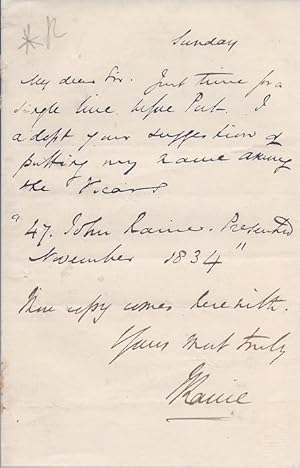 *R
Sunday
My dear Sir. Just time for a
single line before Post. I
adopt your suggestion of
putting my name among
the Vicars
"47. John Raine. Presented
November 1834"
copy comes herewith.
Yours most truly
JRaine